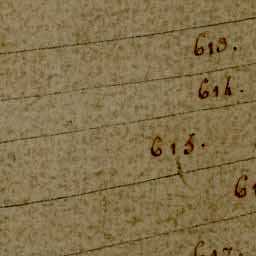 613.
614.
615.
61
617.